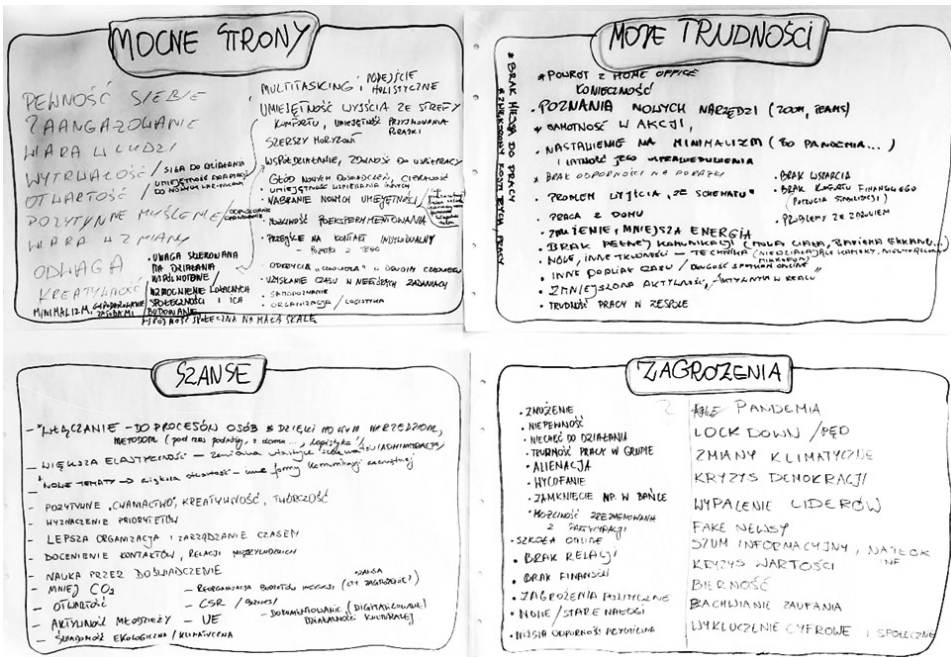 MOCNE STRONY
PEWNOŚĆ SIEBIE
ZAANGAŻOWANIE
WIARA W LUDZI
WYTRWAŁOŚĆ / SIŁA DO DZIAŁANIA
OTWARTOŚĆ / UMIEJĘTNOŚĆ ADAPTACJI DO NOWYCH
POZYTYWNE MYŚLENIE /
WIARA W ZMIANY
ODWAGA
KREATYWNOŚĆ
MINIMALIZM, GOSPODAROWANIE ZASOBAMI
• UWAGA SKIEROWANA
NA DZIAŁANIA
WSPÓLNOTOWE /
WZMOCNIENIE LOKALNYCH
SPOŁECZNOŚCI I ICH
BUDOWANIE
SPÓJNOŚĆ SPOŁECZNA NA MAŁĄ SKALĘ
MULTITASKING i PODEJŚCIE HOLISTYCZNE
UMIEJĘTNOŚĆ WYJŚCIA ZE STREFY
KOMFORTU, UMIEJĘTNOŚĆ PRZYJMOWANIA PORAŻKI
SZERSZY HORYZONT
• WSPÓŁDZIAŁANIE, ZDOLNOŚĆ DO WSPÓŁPRACY
GŁÓD NOWYCH DOŚWIADCZEŃ, CIEKAWOŚĆ
• UMIEJĘTNOŚĆ WSPIERANIA INNYCH
• NABRANIE NOWYCH UMIEJĘTNOŚCI
• MOŻLIWOŚĆ POEKSPERYMENTOWANIA
• PRZEJŚCIE NA KONTAKT INDYWIDUALNY
• ODKRYCIA "CZŁOWIEKA" W DRUGIM CZŁOWIEKU
• UZYSKANIE CZASU W NIEKTÓRYCH ZADANIACH
• SAMOPOZNANIE
• ORGANIZACJA / LOGISTYKA
MOJE TRUDNOŚCI
* BRAK MIEJSCA DO PRACY
* ZWIĘKSZONE KOSZTY ŻYCIA, PRACY
* POWRÓT Z HOME OFFICE
KONIECZNOŚĆ
• POZNANIA NOWYCH NARZĘDZI (ZOOM, TEAMS)
* SAMOTNOŚĆ W AKCJI,
• NASTAWIENIE NA MINIMALIZM (BO PANDEMIA...)
I ŁATWOŚĆ JEGO USPRAWIEDLIWIENIA
* BRAK ODPORNOŚCI NA PORAŻKI
• PROBLEM WYJŚCIA "ZE SCHEMATU"
• PRACA Z DOMU
• ZMĘCZENIE, MNIEJSZA ENERGIA
• BRAK WSPARCIA
• BRAK KOMFORTU FINANSOWEGO
(POCZUCIA STABILIZACJI)
• PROBLEMY ZE ZDROWIEM
• BRAK PEŁNEJ KOMUNIKACJI (MOWA CIAŁA, BARIERA EKRANU...)
• NOWE, INNE TRUDNOŚCI — TECHNIKA (NIEDZIAŁAJĄCE KAMERY, MIKROFON)
• INNE PODZIAŁ CZASU / DŁUGOŚĆ SPOTKAŃ ONLINE
• ZMNIEJSZONA AKTYWNOŚĆ / AKTYWNYM W REALU
• TRUDNOŚĆ PRACY W ZESPOLE
SZANSE
- "WŁĄCZANIE" - DO PROCESÓW OSÓB DZIĘKI NOWYM NARZĘDZIOM,
METODOM (pod nas podróży, z domu..., logistyka)
- WIĘKSZA ELASTYCZNOŚĆ -
- "NOWE TEMATY" → większa otwartość - inne formy komunikacji zewnętrznej
- POZYTYWNE "CWANIACTWO", KREATYWNOŚĆ, TWÓRCZOŚĆ
- WYZNACZENIE PRIORYTETÓW
- LEPSZA ORGANIZACJA I ZARZĄDZANIE CZASEM
- DOCENIENIE KONTAKTÓW, RELACJI MIĘDZYLUDZKICH
- NAUKA PRZEZ DOŚWIADCZENIE
- MNIEJ CO2
- OTWARTOŚĆ
- AKTYWNOŚĆ MŁODZIEŻY
- ŚWIADOMOŚĆ EKOLOGICZNA / KLIMATYCZNA
- REORGANIZACJA BUDŻETÓW INSTYTUCJI (CZY ZAGROŻENIE?) SZANSA
- CSR / BIZNES /
- UE
- DOKUMENTOWANIE (DIGITALIZOWANIE) DZIAŁALNOŚCI KULTURALNEJ
ZAGROŻENIA
• ZNUŻENIE
• NIEPEWNOŚĆ
• NIECHĘĆ DO DZIAŁANIA
• TRUDNOŚĆ PRACY W GRUPIE
• ALIENACJA
• WYCOFANIE
• ZAMKNIĘCIE NP. W BAŃCE
* MOŻLIWOŚĆ ZREZYGNOWANIA
Z PARTYCYPACJI
• SZKOŁA ONLINE
• BRAK RELACJI
• BRAK FINANSÓW
• ZAGROŻENIA POLITYCZNE
• NOWE / STARE NAŁOGI
• NIŻSZA ODPORNOŚĆ PSYCHICZNA
PANDEMIA
LOCK DOWN / PĘD
ZMIANY KLIMATYCZNE
KRYZYS DEMOKRACJI
WYPALENIE LIDERÓW
FAKE NEWSY
SZUM INFORMACYJNY, NATŁOK INF
KRYZYS WARTOŚCI
BIERNOŚĆ
ZACHWIANIE ZAUFANIA
WYKLUCZENIE CYFROWE I SPOŁECZNE